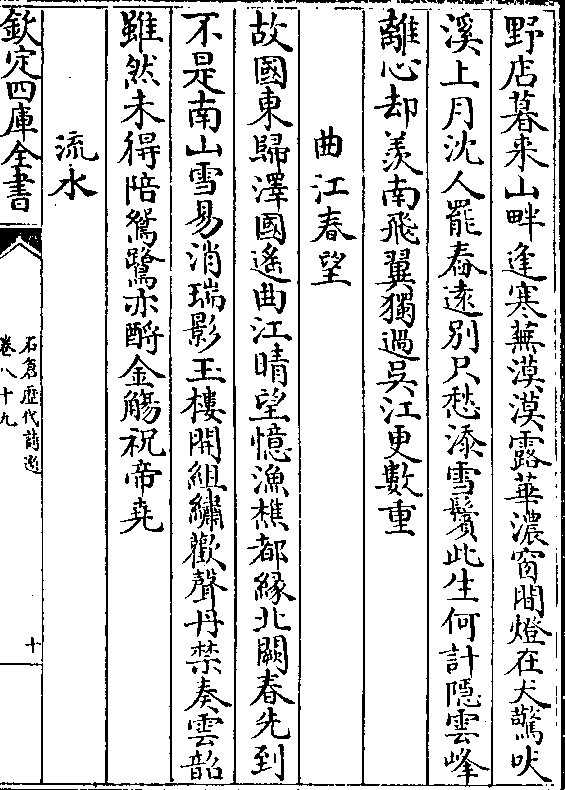 野店暮来山畔逢寒蕪漠漠露華濃窗間燈在犬驚吠
溪上月沈人罷舂遠別只愁添雪鬢此生何計隱雲峰
離心却羨南飛翼獨過吳江更數重
曲江春望
故國東歸澤國遙曲江晴望憶漁樵都緣北闕春先到
不是南山雪易消瑞影玉樓開組繡歡聲丹禁奏雲韶
雖然未得陪鴛鷺亦酹金觴祝帝堯
流水
欽定四庫全書
石倉歷代詩選
卷八十九
十